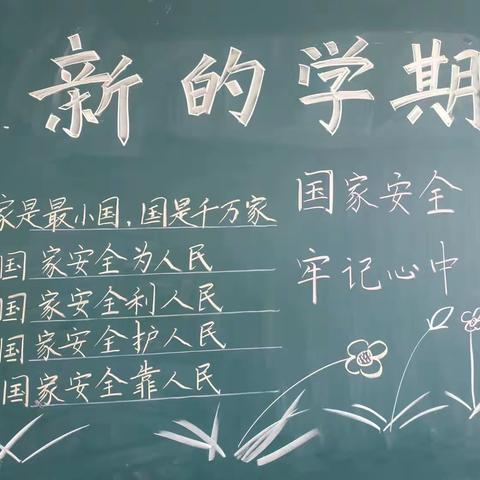 新的学期
家是最小国，国是千万家
国家安全为人民
国家安全利人民
国家安全护人民
国家安全靠人民
国家安全
牢记心中